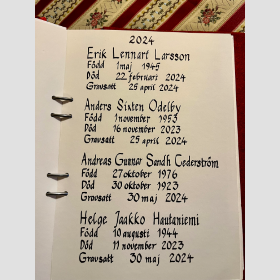 2024
Erik Lennart Larsson
Född 1 maj 1945
Död 22 februari 2024
Gravsatt 25 april 2024
Anders Sixten Odelby
Född 1 november 1953
Död 16 november 2023
Gravsatt 25 april 2024
Andreas Gunnar Sandh Cederström
Född 27 oktober 1976
Död 30 oktober 1923
Gravsatt 30 maj 2024
Helge Jaakko Hautaniemi
Född 10 augusti 1944
Död 11 november 2023
Gravsatt 30 maj 2024